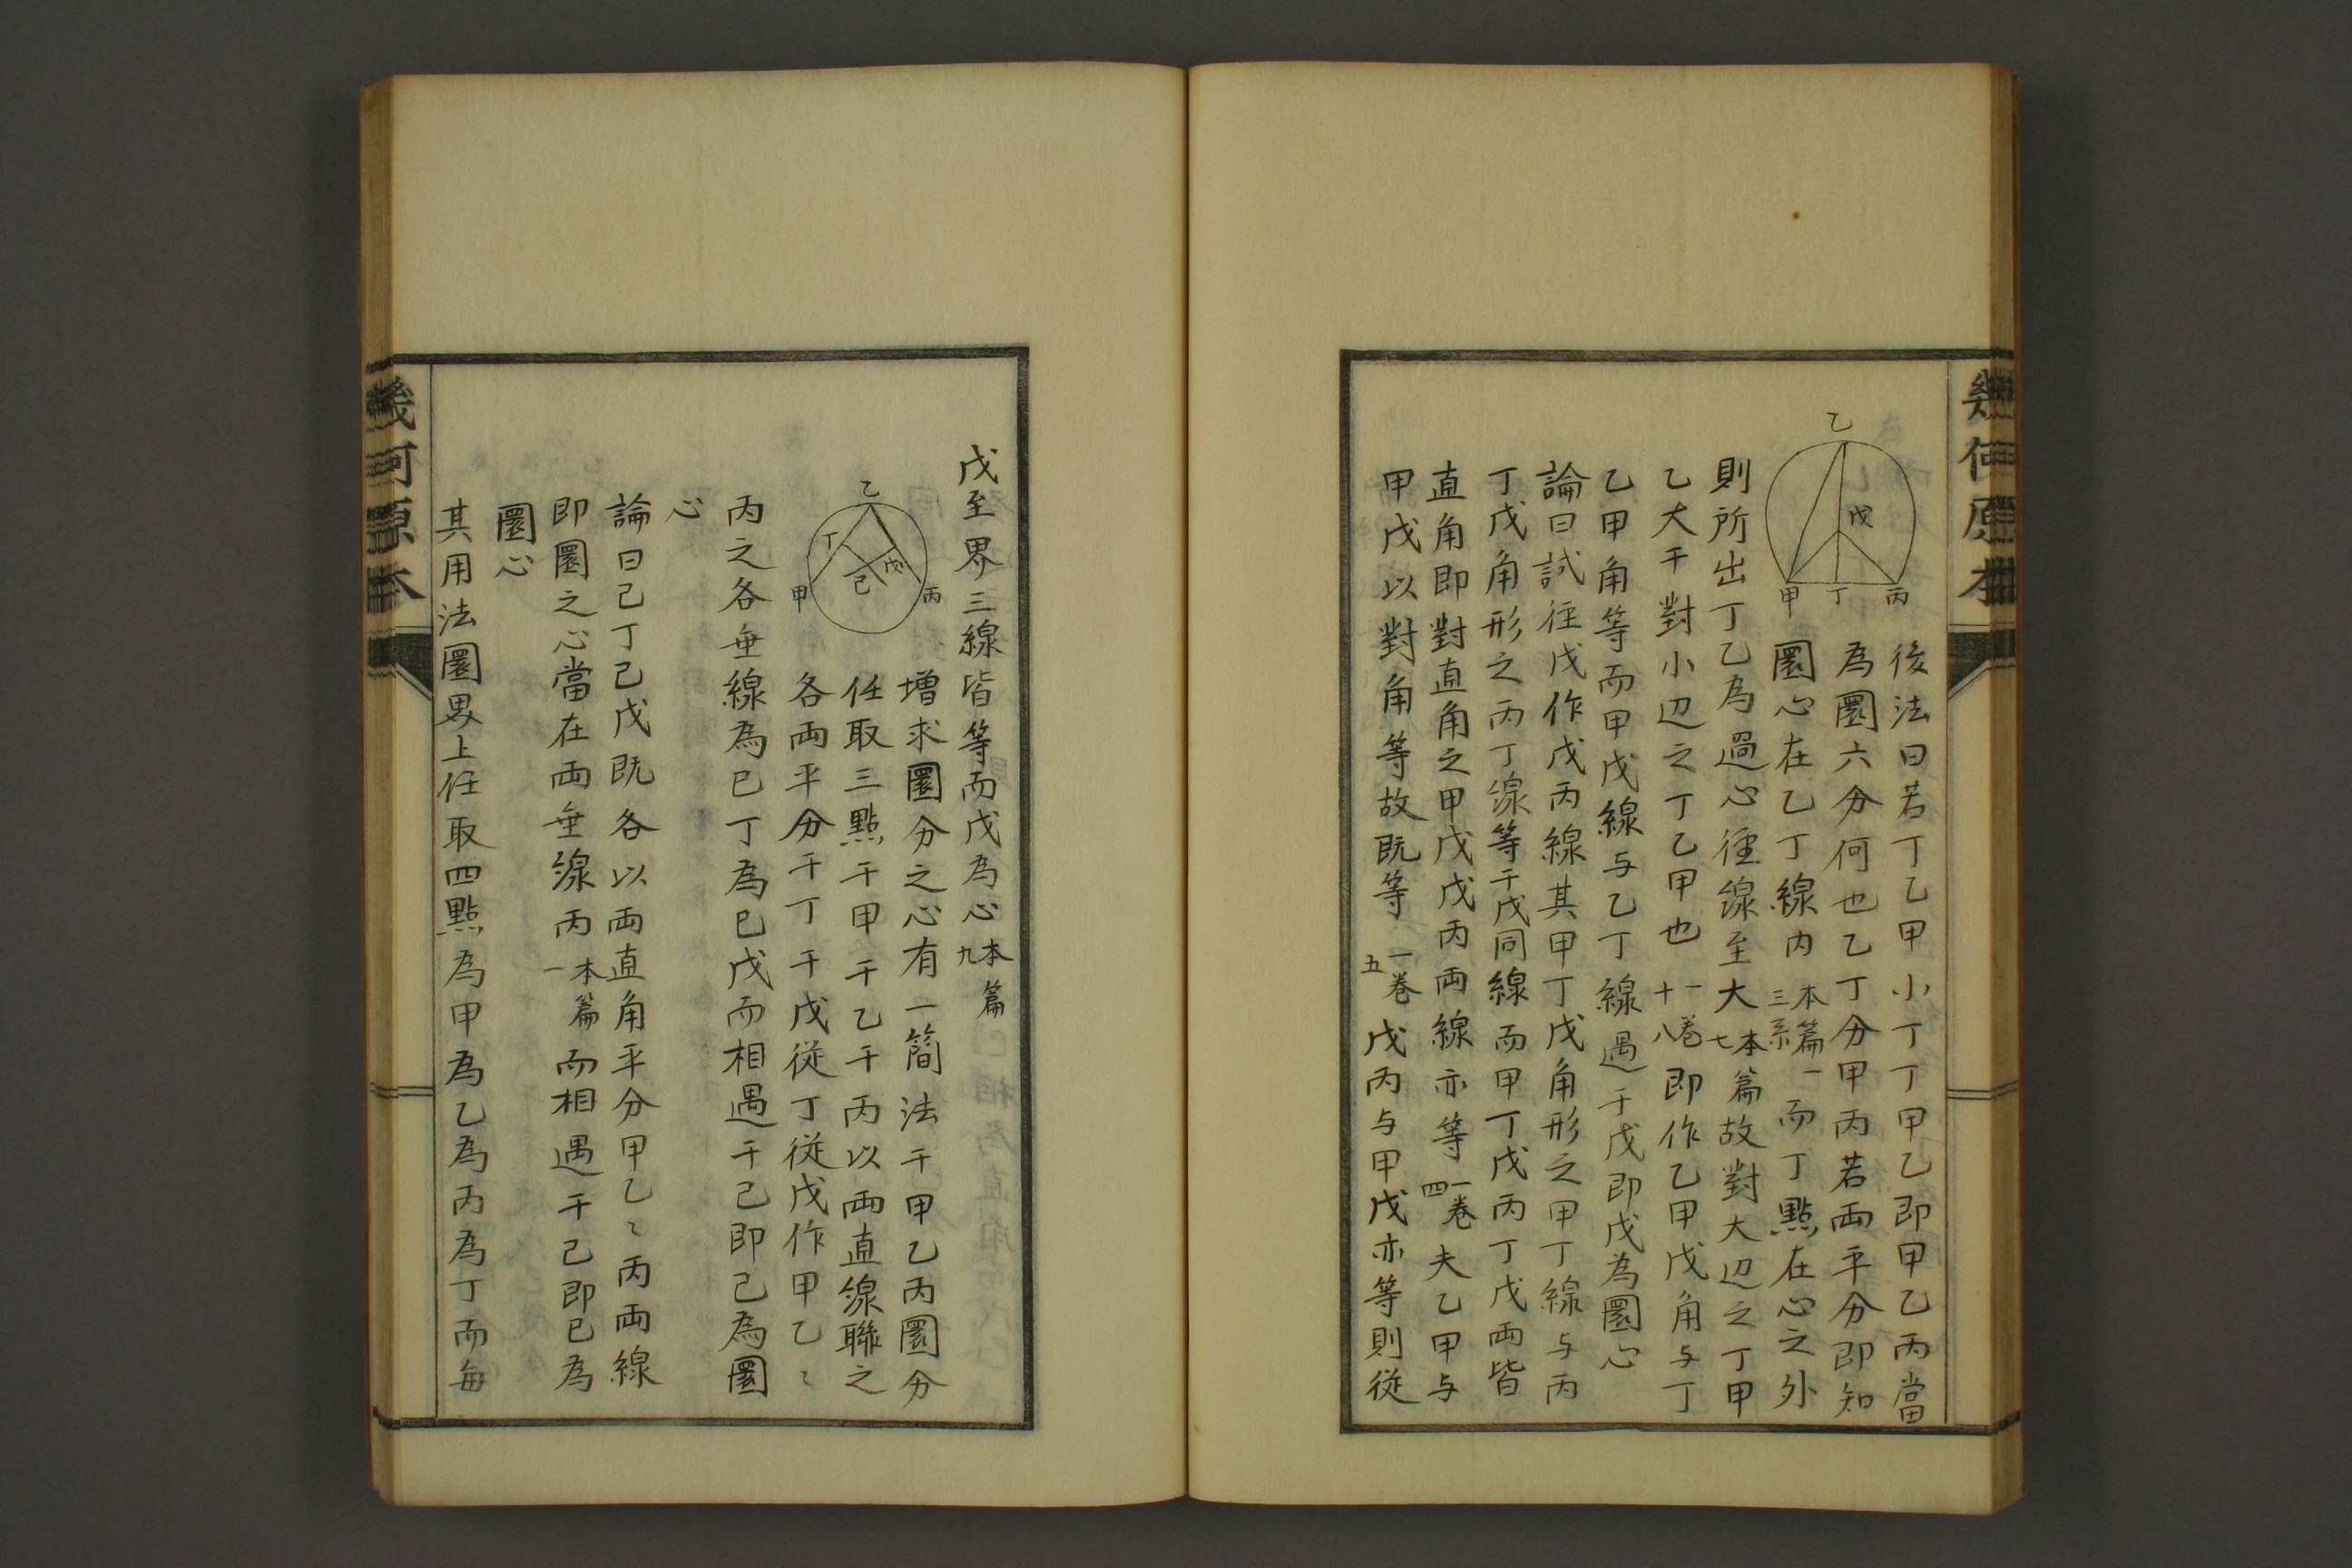 幾何原本
乙
戊
甲 丁 丙
後法曰若丁乙甲小丁丁甲乙即甲乙丙當
為圜六分何也乙丁分甲丙若両平分即知
圜心在乙丁線内本篇一三系而丁點在心之外
則所出丁乙為過心徑線至大本篇七故對大辺之丁甲
乙大于對小辺之丁乙甲也一卷十八即作乙甲戊角与丁
乙甲角等而甲戊線与乙丁線遇于戊即戊為圜心
論曰試従戊作戊丙線其甲丁戊角形之甲丁線与丙
丁戊角形之丙丁線等于戊同線而甲丁戊丙丁戊両皆
直角即對直角之甲戊戊丙両線亦等一卷四夫乙甲与
甲戊以對角等故既等一卷五戊丙与甲戊亦等則従
戊至界三線皆等而戊為心本篇九
乙
丁 戊
己
甲 丙
増求圜分之心有一簡法于甲乙丙圜分
任取三點于甲于乙于丙以両直線聯之
各両平分于丁于戊従丁従戊作甲乙〻
丙之各垂線為已丁為已戊而相遇于己即己為圜
心
論曰己丁己戊既各以両直角平分甲乙〻丙両線
即圜之心當在両垂線丙本篇一而相遇于己即已為
圜心
其用法圜界上任取四點為甲為乙為丙為丁而毎
幾何原本